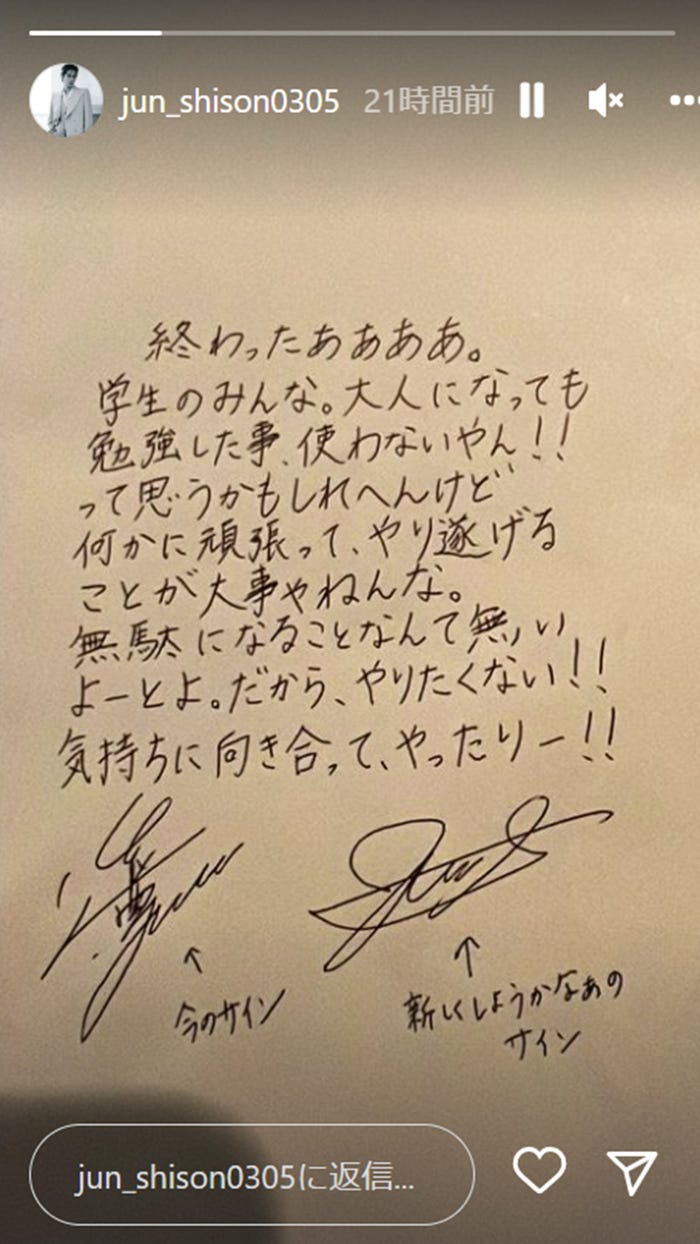 jun_shison0305 21時間前
終わったああああ。
学生のみんな。大人になっても
勉強した事、使わないやん!!
って思うかもしれへんけど
何かに頑張って、やり遂げる
ことが大事やねんな。
無駄になることなんて無ぃい
よーとよ。だから、やりたくない!!
気持ちに向き合って、やったりー!!
↑
今のサイン
↑
新しくしようかなぁの
サイン
jun_shison0305に返信...